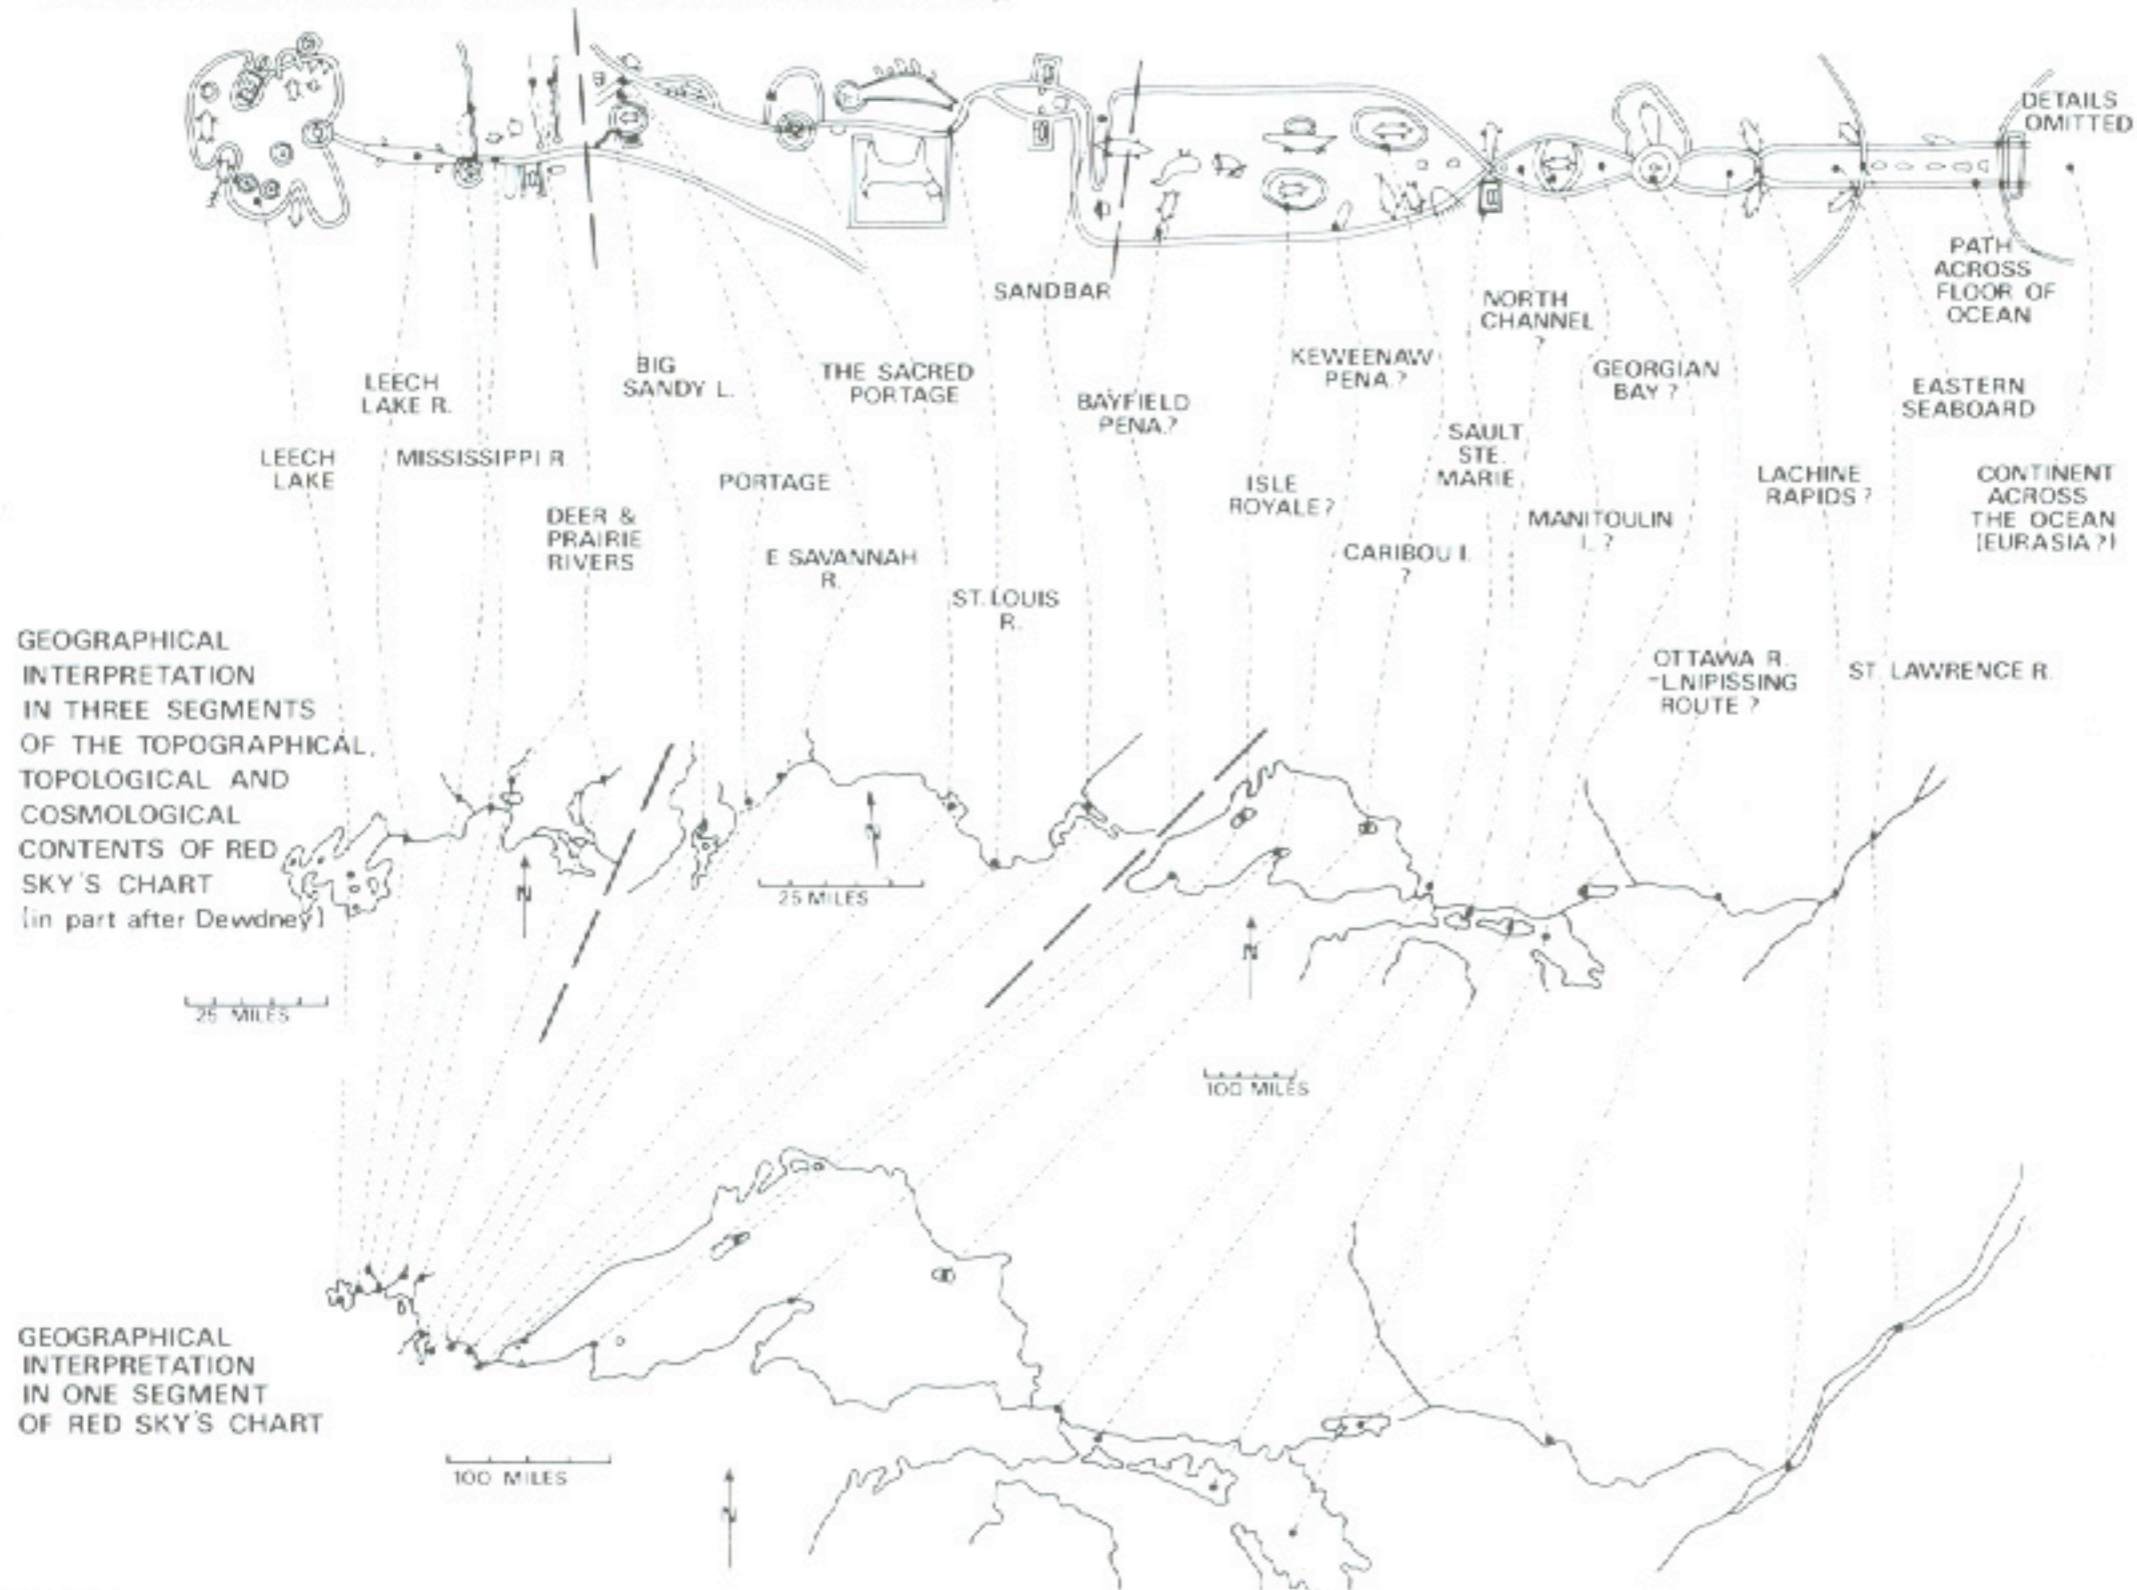 DETAILS
OMITTED
PATH
ACROSS
FLOOR OF
OCEAN
SANDBAR
NORTH
CHANNEL
?
BIG
SANDY L.
THE SACRED
PORTAGE
KEWEENAW
PENA ?
GEORGIAN
BAY ?
LEECH
LAKE R.
BAYFIELD
PENA ?
EASTERN
SEABOARD
LEECH
LAKE
MISSISSIPPI R.
PORTAGE
ISLE
ROYALE ?
SAULT
STE.
MARIE
LACHINE
RAPIDS ?
CONTINENT
ACROSS
THE OCEAN
(EURASIA ?)
DEER &
PRAIRIE
RIVERS
E SAVANNAH
R.
CARIBOU I.
?
MANITOULIN
I. ?
ST. LOUIS
R.
OTTAWA R.
-L.NIPISSING
ROUTE ?
ST. LAWRENCE R.
GEOGRAPHICAL
INTERPRETATION
IN THREE SEGMENTS
OF THE TOPOGRAPHICAL,
TOPOLOGICAL AND
COSMOLOGICAL
CONTENTS OF RED
SKY'S CHART
(in part after Dewdney)
N
N
25 MILES
N
25 MILES
100 MILES
GEOGRAPHICAL
INTERPRETATION
IN ONE SEGMENT
OF RED SKY'S CHART
100 MILES
N